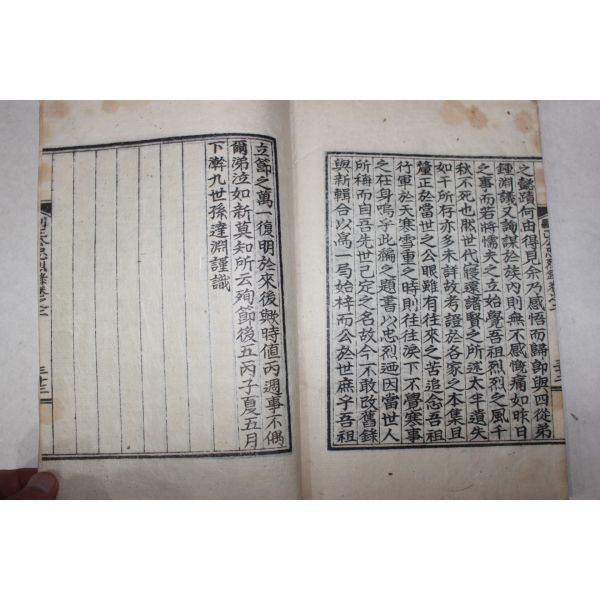 之懿蹟何由得見余乃感悟而歸卽與四從弟
鍾淵議又詢謀於族內則無不感慨痛如昨日
之事而若將懦夫之立始覺吾祖烈烈之風千
秋不死也歟世代寖遠諸賢之所述太半遺失
如干所存亦多未詳故考證於各家之本集且
釐正於當世之公眼雖有往來之苦追念吾祖
行軍於天寒雪重之時則往往淚下不覺寒事
之在身嗚乎此編之題書以忠烈迺因當世人
所稱而自吾先世己定之名故今不敢改舊錄
與新輯合以爲一局始梓而公於世庶乎吾祖
立節之萬一復明於來後歟時値丙週事不偶
爾涕泣如新莫知所云殉節後五丙子夏五月
下澣九世孫達淵謹識
卷之二
三十三